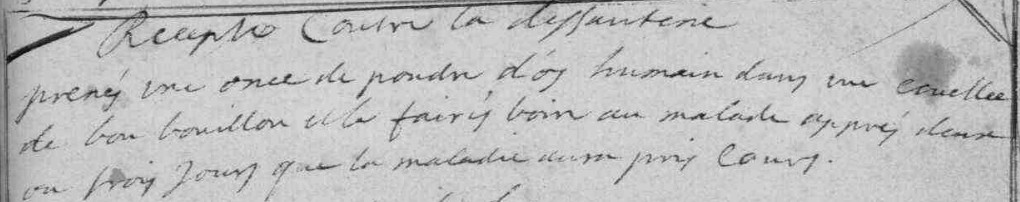 Recepte Contre la dessanterie
prenés une once de poudre d'os humain dans une ecuellee
de bon bouillon et le fairés boire au malade apprés deux
ou trois Jours que la maladie aura pris Cours.